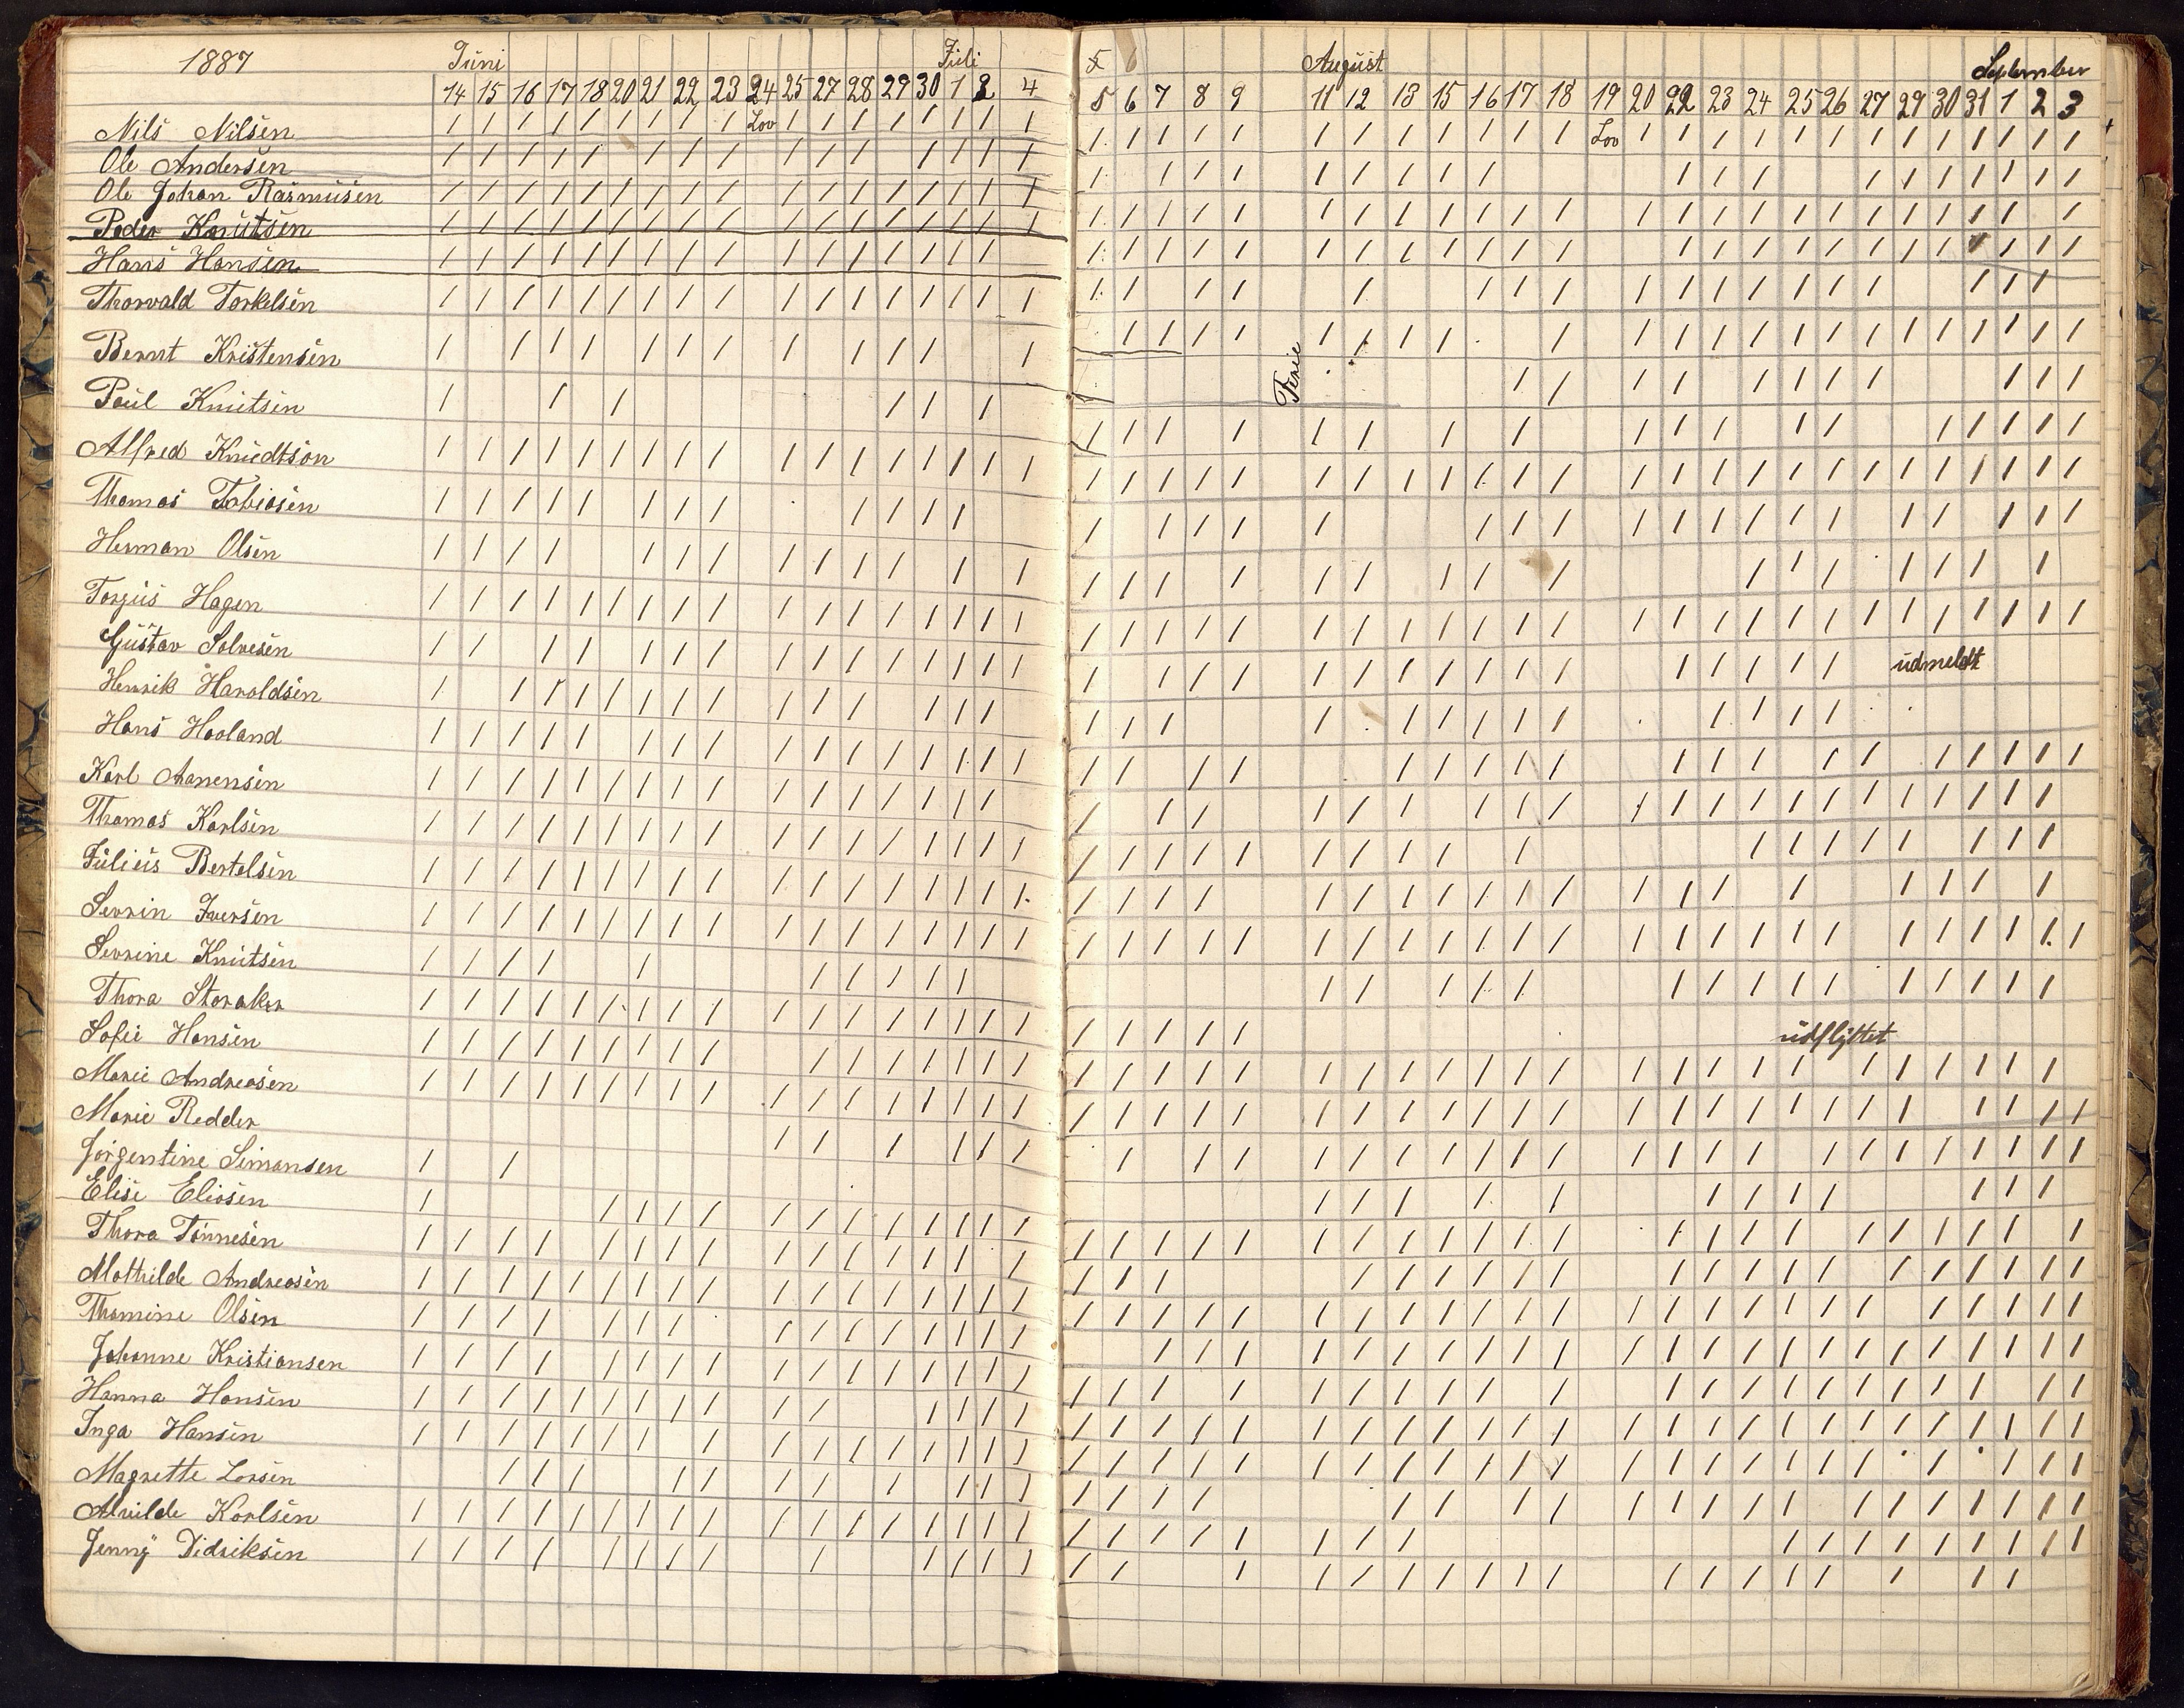 1887 Juni Juli
14 15 16 17 18 20 21 22 23 24 25 27 28 29 30 1 2 4
Nils Nilsen Lov
Ole Andersen
Ole Johan Rasmusen
Peder Knutsen
Hans Hansen
Thorvald Torkelsen
Bernt Kristensen
Paul Knutsen
Alfred Knudtson
Thomas Tobiasen
Herman Olsen
Torjus Hagen
Gustav Solvesen
Henrik Haroldsen
Hans Haaland
Karl Aanensen
Thomas Karlsen
Julius Bertelsen
Sevrin Iversen
Sevrine Knutsen
Thora Storaker
Sofie Hansen
Marie Andreasen
Marie Redder
Jørgentine Simonsen
Elise Eliasen
Thora Tønnesen
Mathilde Andreasen
Thomine Olsen
Johanne Kristiansen
Hanna Hansen
Inga Hansen
Magrette Larsen
Alvilde Karlsen
Jenny Didriksen
5 August September
5 6 7 8 9 11 12 13 15 16 17 18 19 20 22 23 24 25 26 27 29 30 31 1 2 3
Lov
Ferie
udmeldt
udflyttet